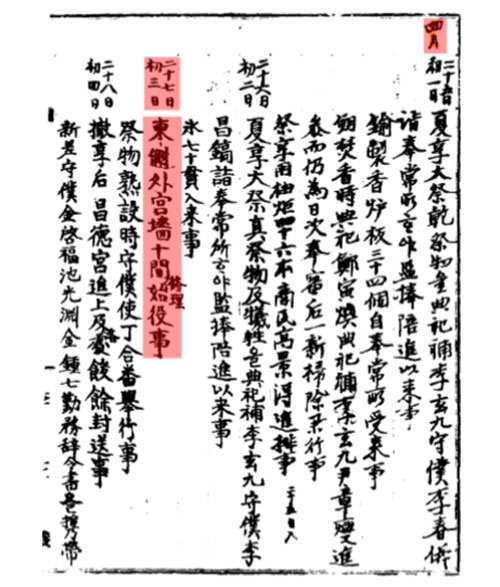 四月
二十五日
初一日
夏享大祭乾祭物圭典祀補李玄九守僕李春𠐍
詣奉常所主作監捧陪進以来事
鍮製香炉板三十四個自奉常所受来事
朔焚香時典祀鄭寅燠典祀補李玄九尹章燮進
参而仍為日次奉審后一新掃除灵行事
祭享用柚炬四十六本商民高景得進排事 二十五日入
二十六日
初二日
夏享大祭真祭物及犧牲圭典祀補李玄九守僕李
昌鎬詣奉常所主作監捧陪進以来事
氷七十貫入来事
二十七日
初三日
東側外宮墻十間修理始役事
祭物熟設時守僕使丁合番擧行事
二十八日
初四日
撤享后昌德宮進上及各餕餘封送事
新差守僕金啓福池光淵金鍾七勤務辞令書各授佩